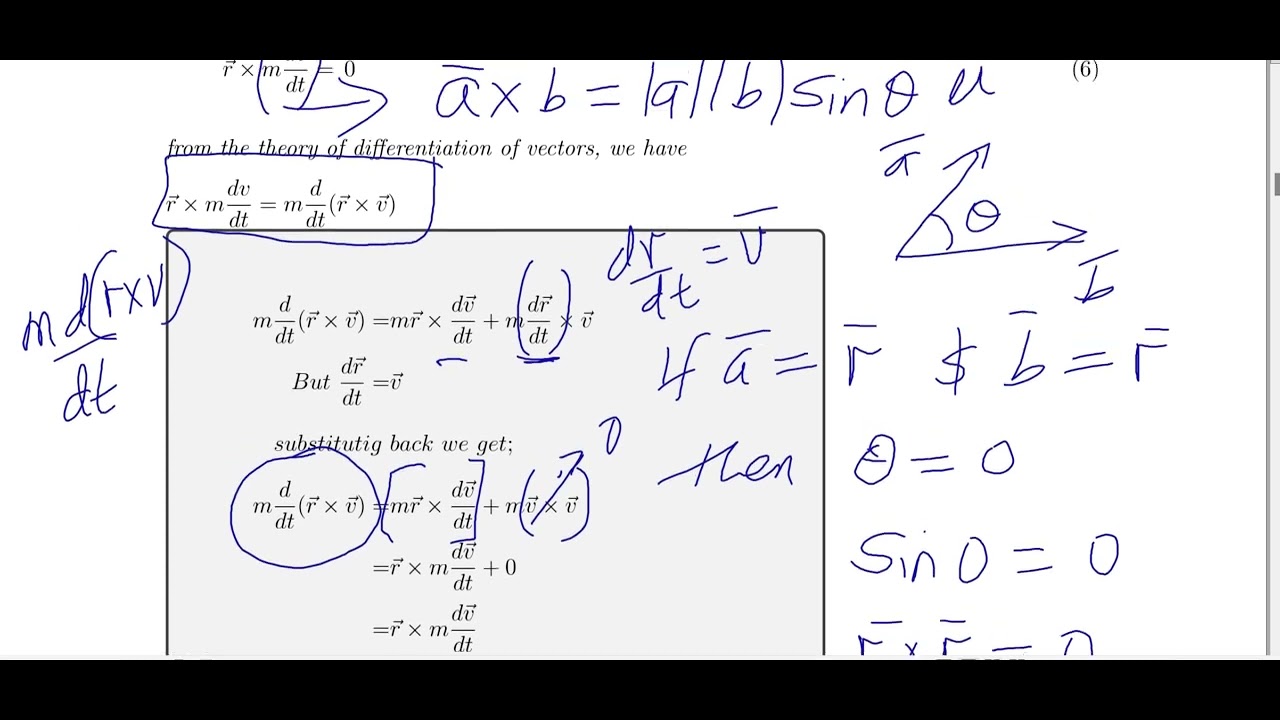 r⃗ × m dv/dt = 0 (6)
a̅ × b = |a||b| sin θ u
from the theory of differentiation of vectors, we have
r⃗ × m dv/dt = m d/dt (r⃗ × v⃗)
a̅
θ
b̅
dr/dt = v̅
m d(r×v)/dt
m d/dt (r⃗ × v⃗) =mr⃗ × dv⃗/dt + m dr⃗/dt × v⃗
If a̅ = r̅ $ b̅ = r̅
But dr⃗/dt =v⃗
substitutig back we get;
0
then θ = 0
m d/dt (r⃗ × v⃗) =mr⃗ × dv⃗/dt + mv⃗ × v⃗
sin 0 = 0
=r⃗ × m dv⃗/dt + 0
=r⃗ × m dv⃗/dt
r̅ × r̅ = 0